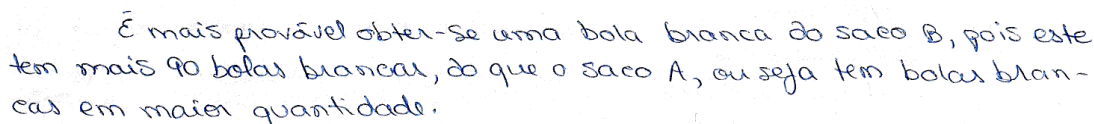 É mais provável obter-se uma bola branca do saco B, pois este
tem mais 90 bolas brancas, do que o saco A, ou seja tem bolas bran-
cas em maior quantidade.